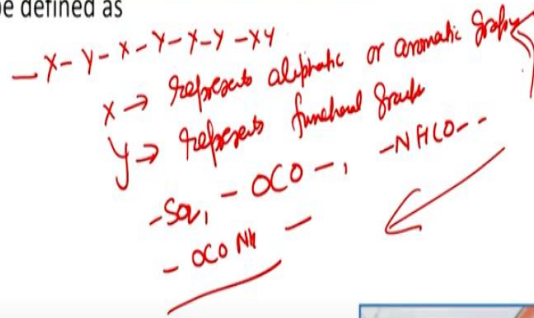 be defined as
- X - Y - X - Y - X - Y - XY
X → represents aliphatic or aromatic groups
Y → represents functional groups
- SO2, - OCO -, - NHCO - -
- OCO NH -